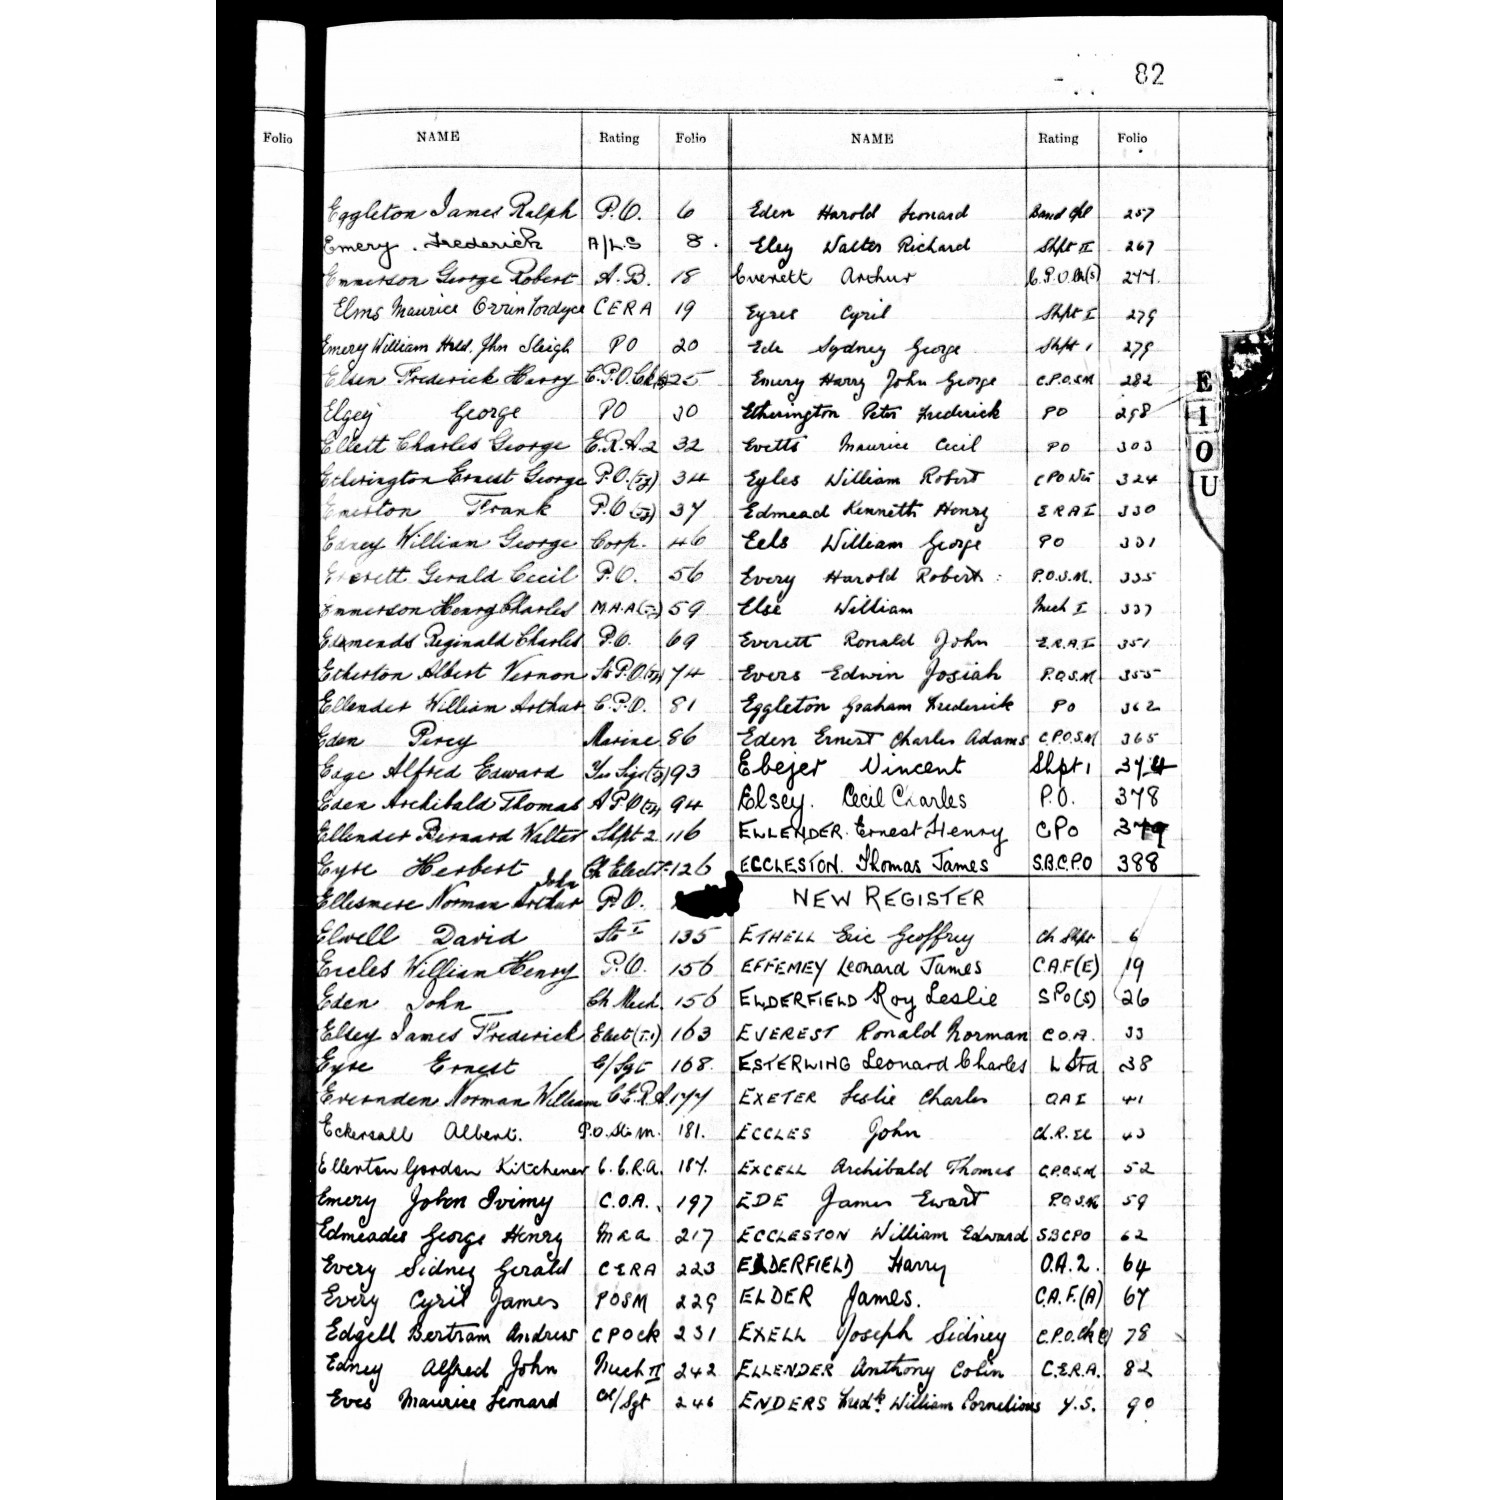 82
Folio
NAME Rating Folio
Eggleton James Ralph P.O. 6
Emery . Frederick A/L.S 8 .
Emmerson George Robert A.B. 18
Elms Maurice Orrin Fordyce CERA 19
Emery William John Sleigh PO 20
Elsen Frederick Harry C.P.O. 25
Elgey George PO 30
Elliott Charles George E.R.A.2 32
Etherington Ernest George P.O.(Ty) 34
Emerton Frank P.O(Ty) 37
Edney William George Corp. 46
Everett Gerald Cecil P.O. 56
Emmerson Henry Charles M.A.A(Ty) 59
Edmends Reginald Charles P.O. 69
Etherton Albert Vernon St P.O.(Ty) 74
Ellender William Arthur C.P.O. 81
Eden Percy Marine 86
Edge Alfred Edward Yeo Sigs(Ty) 93
Eden Archibald Thomas A P.O(Ty) 94
Ellender Bernard Walter Shpt 2 116
Eyre Herbert Ch Elect 126
Ellesmere Norman John Arthur P.O.
Elwell David Sto I 135
Eccles William Henry P.O. 156
Eden John Ch Mech. 156
Elsey James Frederick Elect (T.1) 163
Eyre Ernest C/Sgt 168.
Evernden Norman William C.E.R.A. 177
Eckersall Albert. P.O. Sto M. 181.
Ellerton Gordon Kitchener C.E.R.A. 187.
Emery John Ivimy C.O.A. 197
Edmeades George Henry 217
Every Sidney Gerald CERA 223
Every Cyril James POSM 229
Edgell Bertram Andrew CPO Ck 231
Edney Alfred John Mech II 242
Eves Maurice Leonard Cl/Sgt 246
NAME Rating Folio
Eden Harold Leonard Band Cpl 257
Eley Walter Richard Shpt II 267
Everett Arthur C.P.O. Ck(S) 277.
Eyres Cyril Shpt I 279
Ede Sydney George Shpt 1 279
Emery Harry John George C.P.O.S.M 282
Etherington Peter Frederick PO 298
Evetts Maurice Cecil PO 303
Eyles William Robert CPO Wtr 324
Edmead Kenneth Henry ERA I 330
Eels William George PO 331
Every Harold Robert. P.O.S.M. 335
Else William Mech I 337
Everett Ronald John E.R.A.I 351
Evers Edwin Josiah P.O.S.M 355
Eggleton Graham Frederick PO 362
Eden Ernest Charles Adams C.P.O.S.M 365
Ebejer Vincent Shpt 1 374
Elsey. Cecil Charles P.O. 378
ELLENDER. Ernest Henry CPO 379
ECCLESTON. Thomas James S.B.C.P.O 388
NEW REGISTER
ETHELL Eric Geoffrey Ch Shpt 6
EFFEMEY Leonard James C.A.F(E) 19
ELDERFIELD Roy Leslie SPO(S) 26
EVEREST Ronald Norman C.O.A. 33
ESTERLING Leonard Charles L Std 38
EXETER Leslie Charles OAI 41
ECCLES John Ch.R.El 43
EXCELL Archibald Thomas C.P.O.S.M 52
EDE James Ewart P.O.S.M 59
ECCLESTON William Edward SBCPO 62
ELDERFIELD Harry O.A.2. 64
ELDER James. C.A.F.(A) 67
EXELL Joseph Sidney C.P.O.Ck(O) 78
ELLENDER Anthony Colin C.E.R.A. 82
ENDERS Fredk. William Cornelious Y.S. 90
E
I
O
U